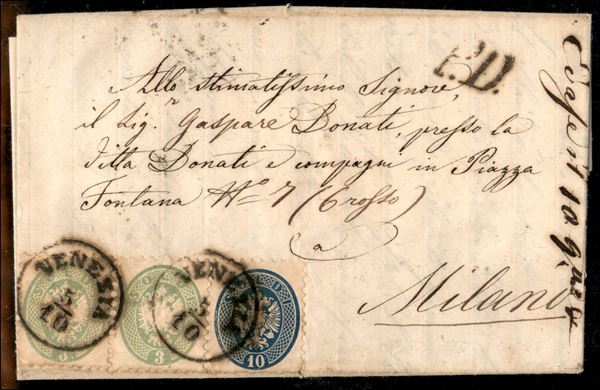 P.D.
Allo stimatissimo Signore,
il Sig.r Gaspare Donati, presso la
ditta Donati e compagni in Piazza
Fontana No 7 (Grosso)
a
Milano
VENEZIA
5/10
VENEZIA
5/10
3
3
10